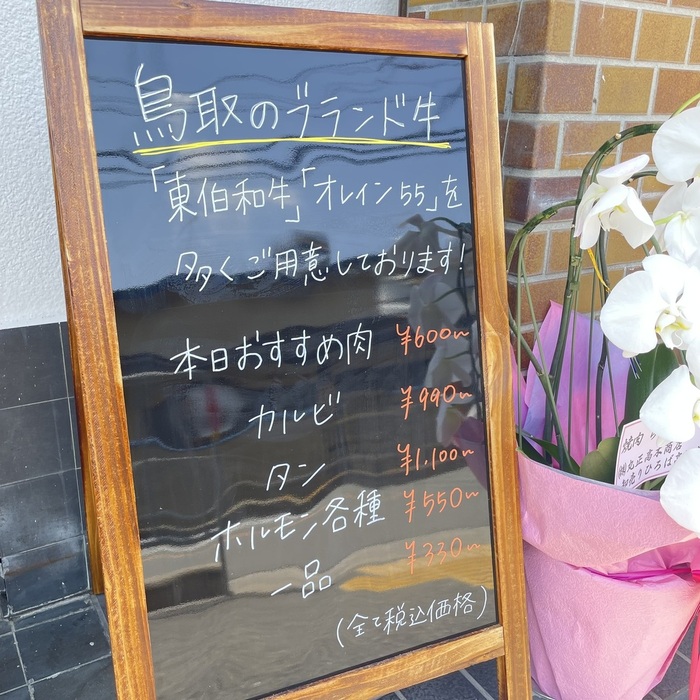 鳥取のブランド牛
「東伯和牛」「オレイン55」を
多くご用意しております!
本日おすすめ肉 ¥600〜
カルビ ¥990〜
タン ¥1,100〜
ホルモン各種 ¥550〜
一品 ¥330〜
(全て税込価格)
焼肉
㈱丸正高木商店
卸売りひろば